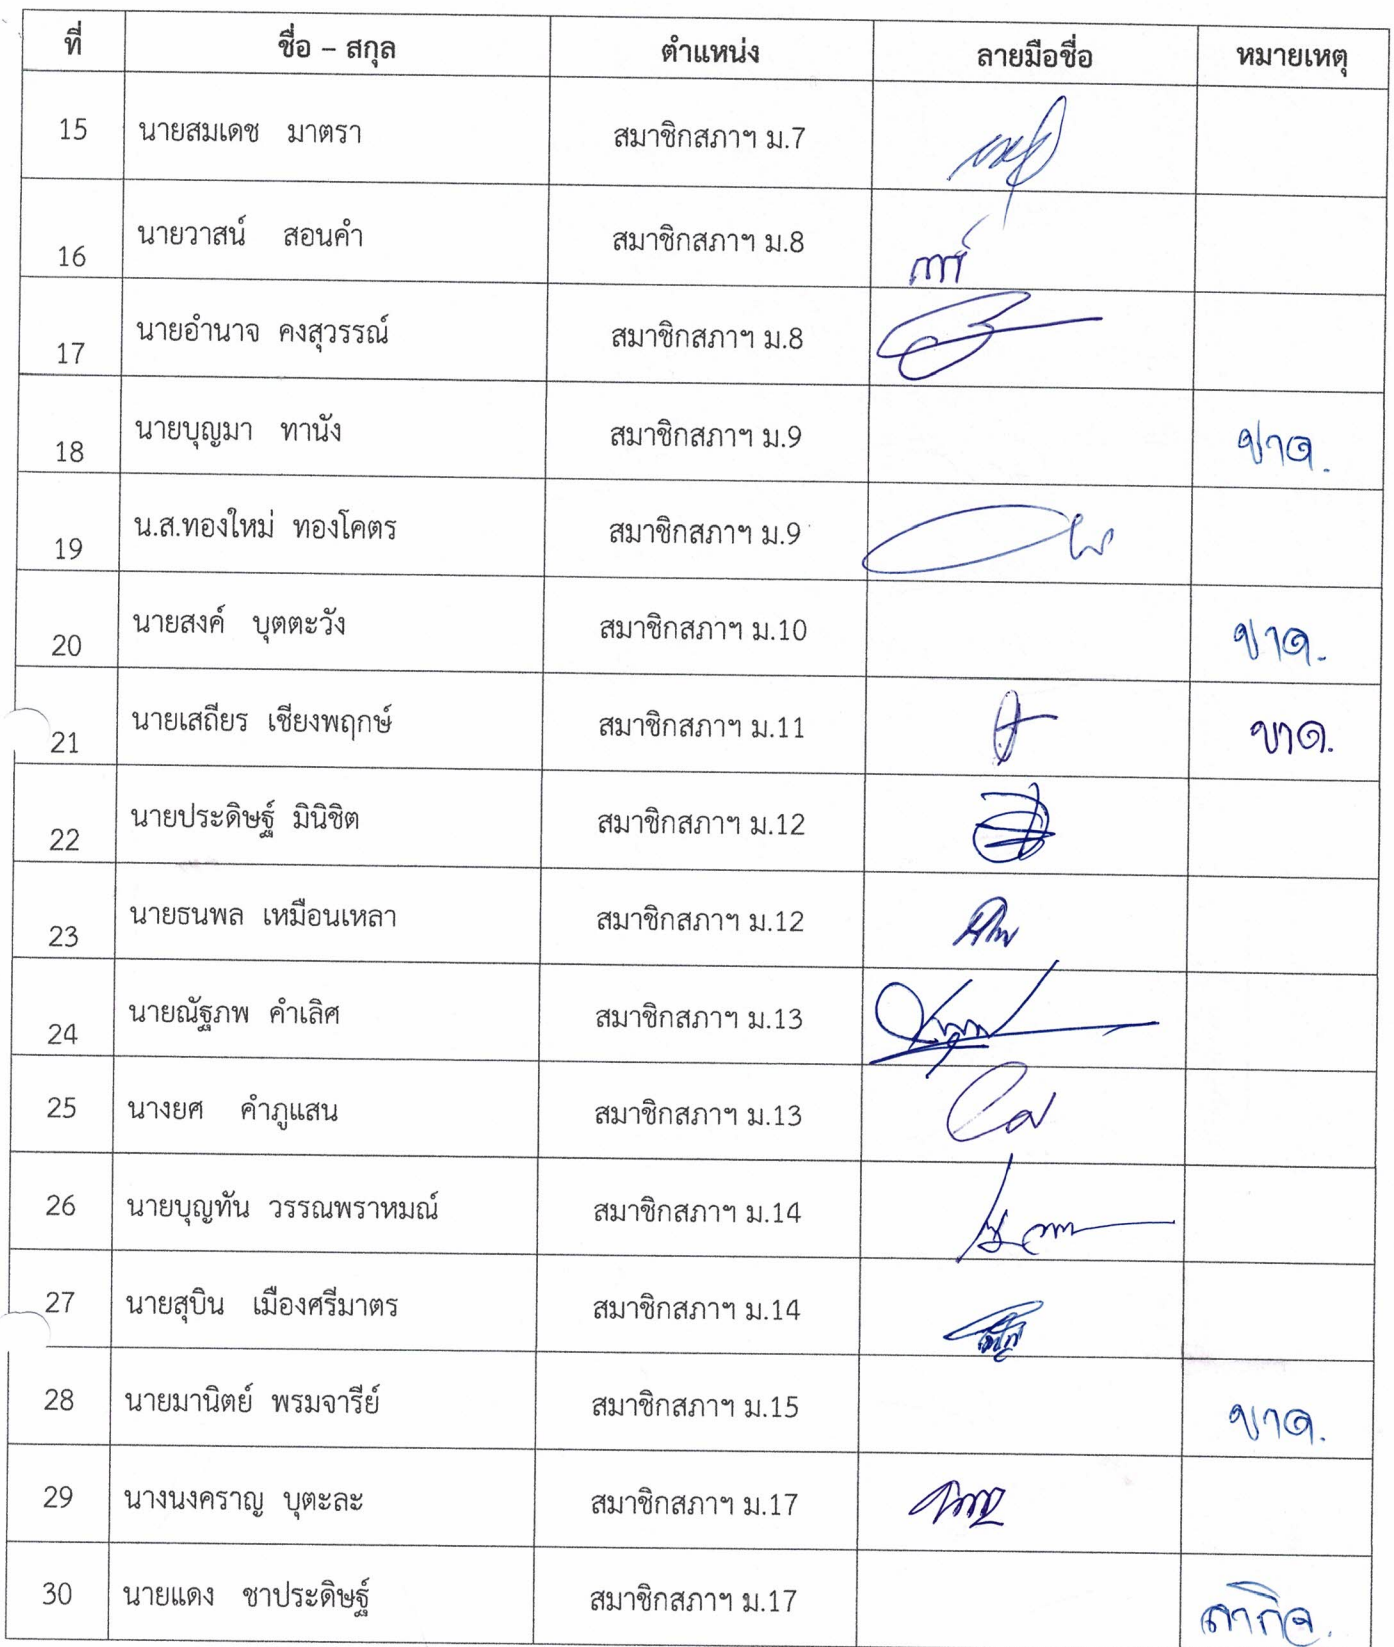 ที่ ชื่อ – สกุล ตำแหน่ง ลายมือชื่อ หมายเหตุ
15 นายสมเดช มาตรา สมาชิกสภาฯ ม.7
16 นายวาสน์ สอนคำ สมาชิกสภาฯ ม.8
17 นายอำนาจ คงสุวรรณ์ สมาชิกสภาฯ ม.8
18 นายบุญมา ทานัง สมาชิกสภาฯ ม.9 ขาด.
19 น.ส.ทองใหม่ ทองโคตร สมาชิกสภาฯ ม.9
20 นายสงค์ บุตตะวัง สมาชิกสภาฯ ม.10 ขาด.
21 นายเสถียร เชียงพฤกษ์ สมาชิกสภาฯ ม.11 ขาด.
22 นายประดิษฐ์ มินิชิต สมาชิกสภาฯ ม.12
23 นายธนพล เหมือนเหลา สมาชิกสภาฯ ม.12
24 นายณัฐภพ คำเลิศ สมาชิกสภาฯ ม.13
25 นางยศ คำภูแสน สมาชิกสภาฯ ม.13
26 นายบุญทัน วรรณพราหมณ์ สมาชิกสภาฯ ม.14
27 นายสุบิน เมืองศรีมาตร สมาชิกสภาฯ ม.14
28 นายมานิตย์ พรมจารีย์ สมาชิกสภาฯ ม.15 ขาด.
29 นางนงคราญ บุตะละ สมาชิกสภาฯ ม.17
30 นายแดง ชาประดิษฐ์ สมาชิกสภาฯ ม.17 ภากิจ.